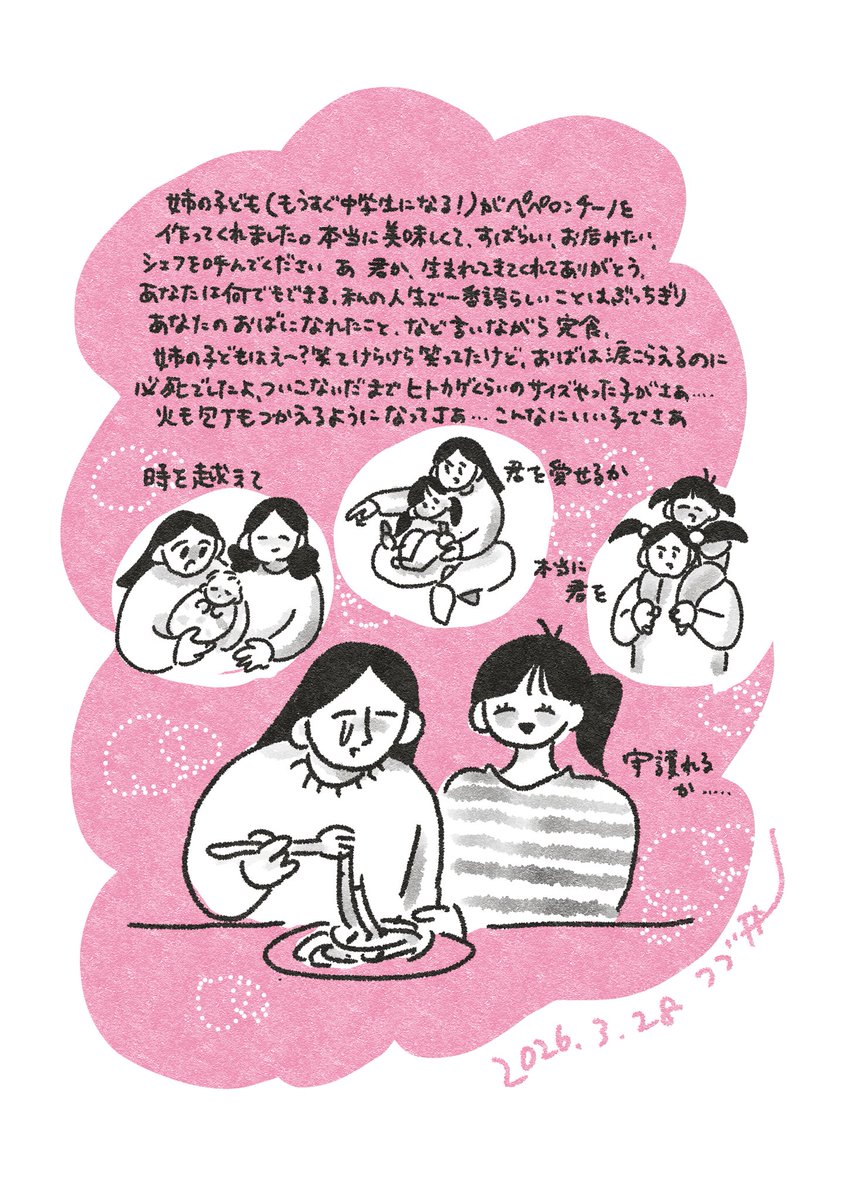 姉の子ども(もうすぐ中学生になる!)がペペロンチーノを
作ってくれました。本当に美味しくて、すばらしい、お店みたい、
シェフを呼んでください あ 君か、生まれてきてくれてありがとう、
あなたは何でもできる、私の人生で一番誇らしいことはぶっちぎり
あなたのおばになれたこと、など言いながら完食、
姉の子どもはえ〜?笑てけらけら笑ってたけど、おばは涙こらえるのに
必死でしたよ、ついこないだまでヒトカゲくらいのサイズやった子がさぁ....
火も包丁もつかえるようになってさぁ... こんなにいい子でさぁ
時を越えて
君を愛せるか
本当に
君を
守護れる
か......
2026.3.28 つづ井